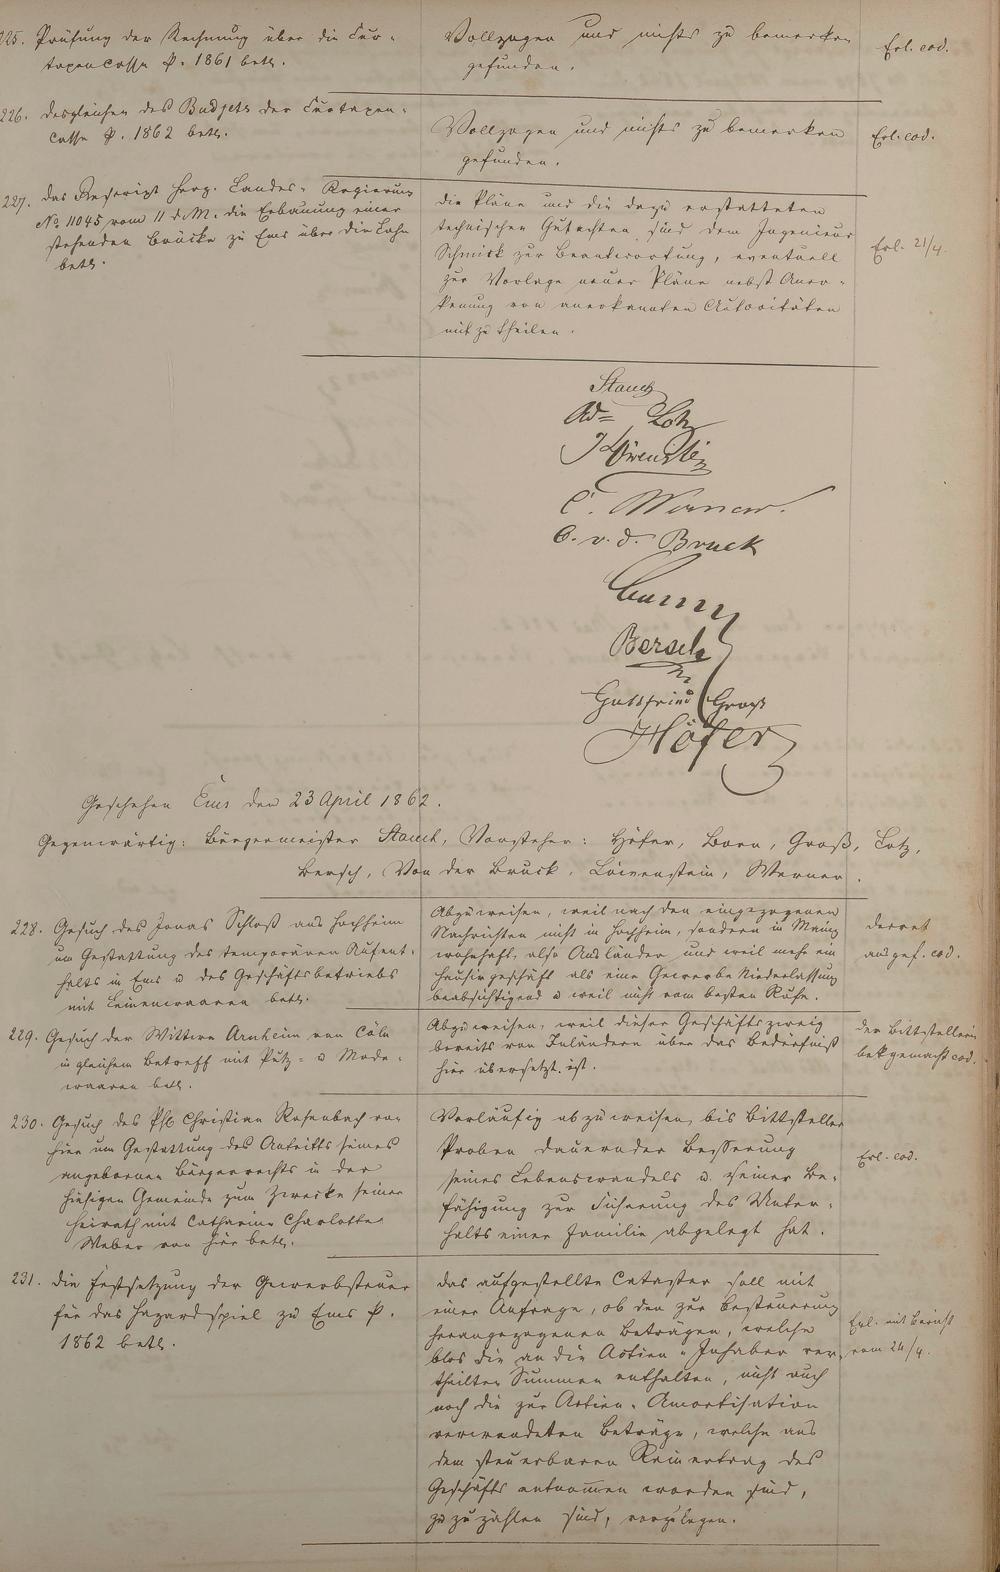 225. Prüfung der Rechnung über die Cur-
taxencasse p. 1861 betr.
Vollzogen und nichts zu bemerken
gefunden.
Erl. eod.
226. desgleichen des Budjets der Curtaxen-
casse p. 1862 betr.
Vollzogen und nichts zu bemerken
gefunden.
Erl. eod.
227. das Rescript Herz. Landes-Regierung
No 11045 vom 11 d. M. die Erbauung einer
stehenden Brücke zu Ems über die Lahn
betr.
die Pläne und die dazu erstatteten
technischen Gutachten sind dem Ingenieur
Schmick zur Beantwortung, eventuell
zur Vorlage neuer Pläne nebst Aner-
kenung von anerkannten Autoritäten
mitzutheilen.
Erl. 21/4.
Stauch
Ad= Lotz
J Löwenstein
C. Werner.
C. v. d. Bruck
Bersch
Gottfried Groß
Höfer
Geschehen Ems den 23 April 1862.
Gegenwärtig: Bürgermeister Stauch, Vorsteher: Höfer, Born, Groß, Lotz,
Bersch, Von der Bruck, Löwenstein, Werner.
228. Gesuch des Jonas Schloß aus Hochheim
um Gestattung des temporären Aufent-
halts in Ems u des Geschäftsbetriebs
mit Leinenwaaren betr.
Abzuweisen, weil nach den eingezogenen
Nachrichten nicht in Hochheim, sondern in Mainz
wohnhaft, also Ausländer und weil mehr ein
Hausirgeschäft als eine Gewerbe Niederlassung
beabsichtigend u weil nicht vom besten Rufe.
decret
ausgef. eod.
229. Gesuch der Wittwe Arnheim von Cöln
in gleichem Betreff mit Putz- u Mode-
waaren betr.
Abzuweisen, weil dieser Geschäftszweig
bereits von Inländern über das Bedürfniß
hier übersetzt ist.
der Bittstellerin
bektgemacht eod.
230. Gesuch des Phl Christian Rosenbach von
hier um Gestattung des Antritts seines
angebornen Bürgerrechts in der
hiesigen Gemeinde zum Zwecke seiner
Heirath mit Catharine Charlotte
Weber von hier betr.
Vorläufig abzuweisen, bis Bittsteller
Proben dauernder Besserung
seines Lebenswandels u. seiner Be-
fähigung zur Sicherung des Unter-
halts einer Familie abgelegt hat.
Erl. eod.
231. die Festsetzung der Gewerbsteuer
für das Hazardspiel zu Ems p.
1862 betr.
das aufgestellte Cataster soll mit
einer Anfrage, ob den zur Besteuerung
herangezogenen Beträgen, welche
blos die an die Actien-Inhaber ver-
theilten Summen enthalten, nicht auch
noch die zur Actien-Amortisation
verwendeten Beträge, welche aus
dem steuerbaren Reinertrag des
Geschäfts entnommen worden sind,
zuzuzählen sind, vorzulegen.
Erl. mit Bericht
vom 24/4.